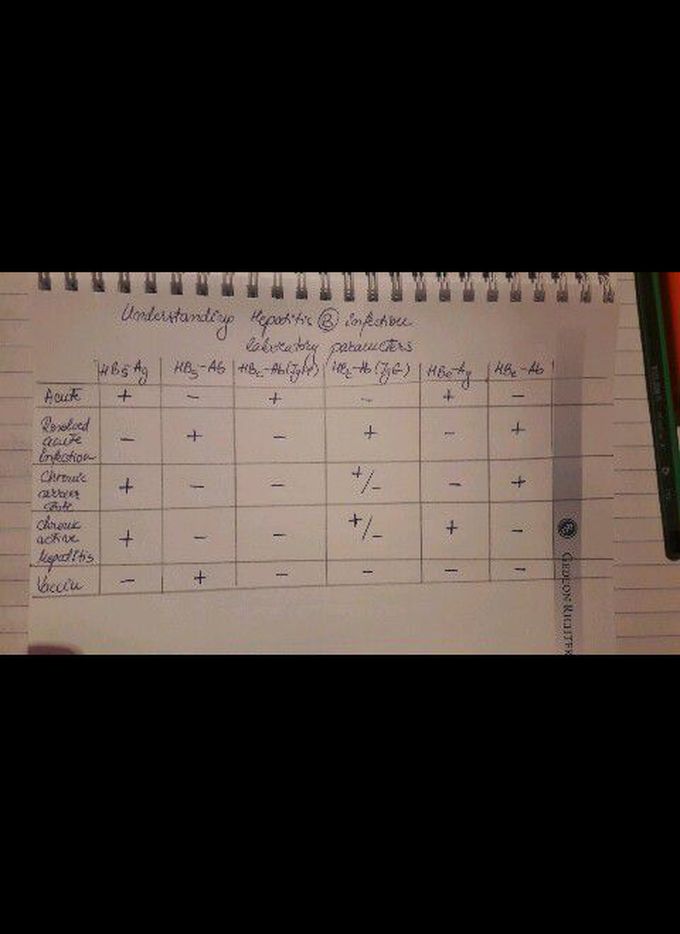 Understanding Hepatitis B infection
laboratory parameters
HBs-Ag HBs-Ab HBc-Ab (IgM) HBc-Ab (IgG) HBe-Ag HBe-Ab
Acute + - + - + -
Resolved
acute
infection - + - + - +
Chronic
carrier
state + - - +/- - +
Chronic
active
Hepatitis + - - +/- + -
Vaccin - + - - - -
GEDEON RICHTER